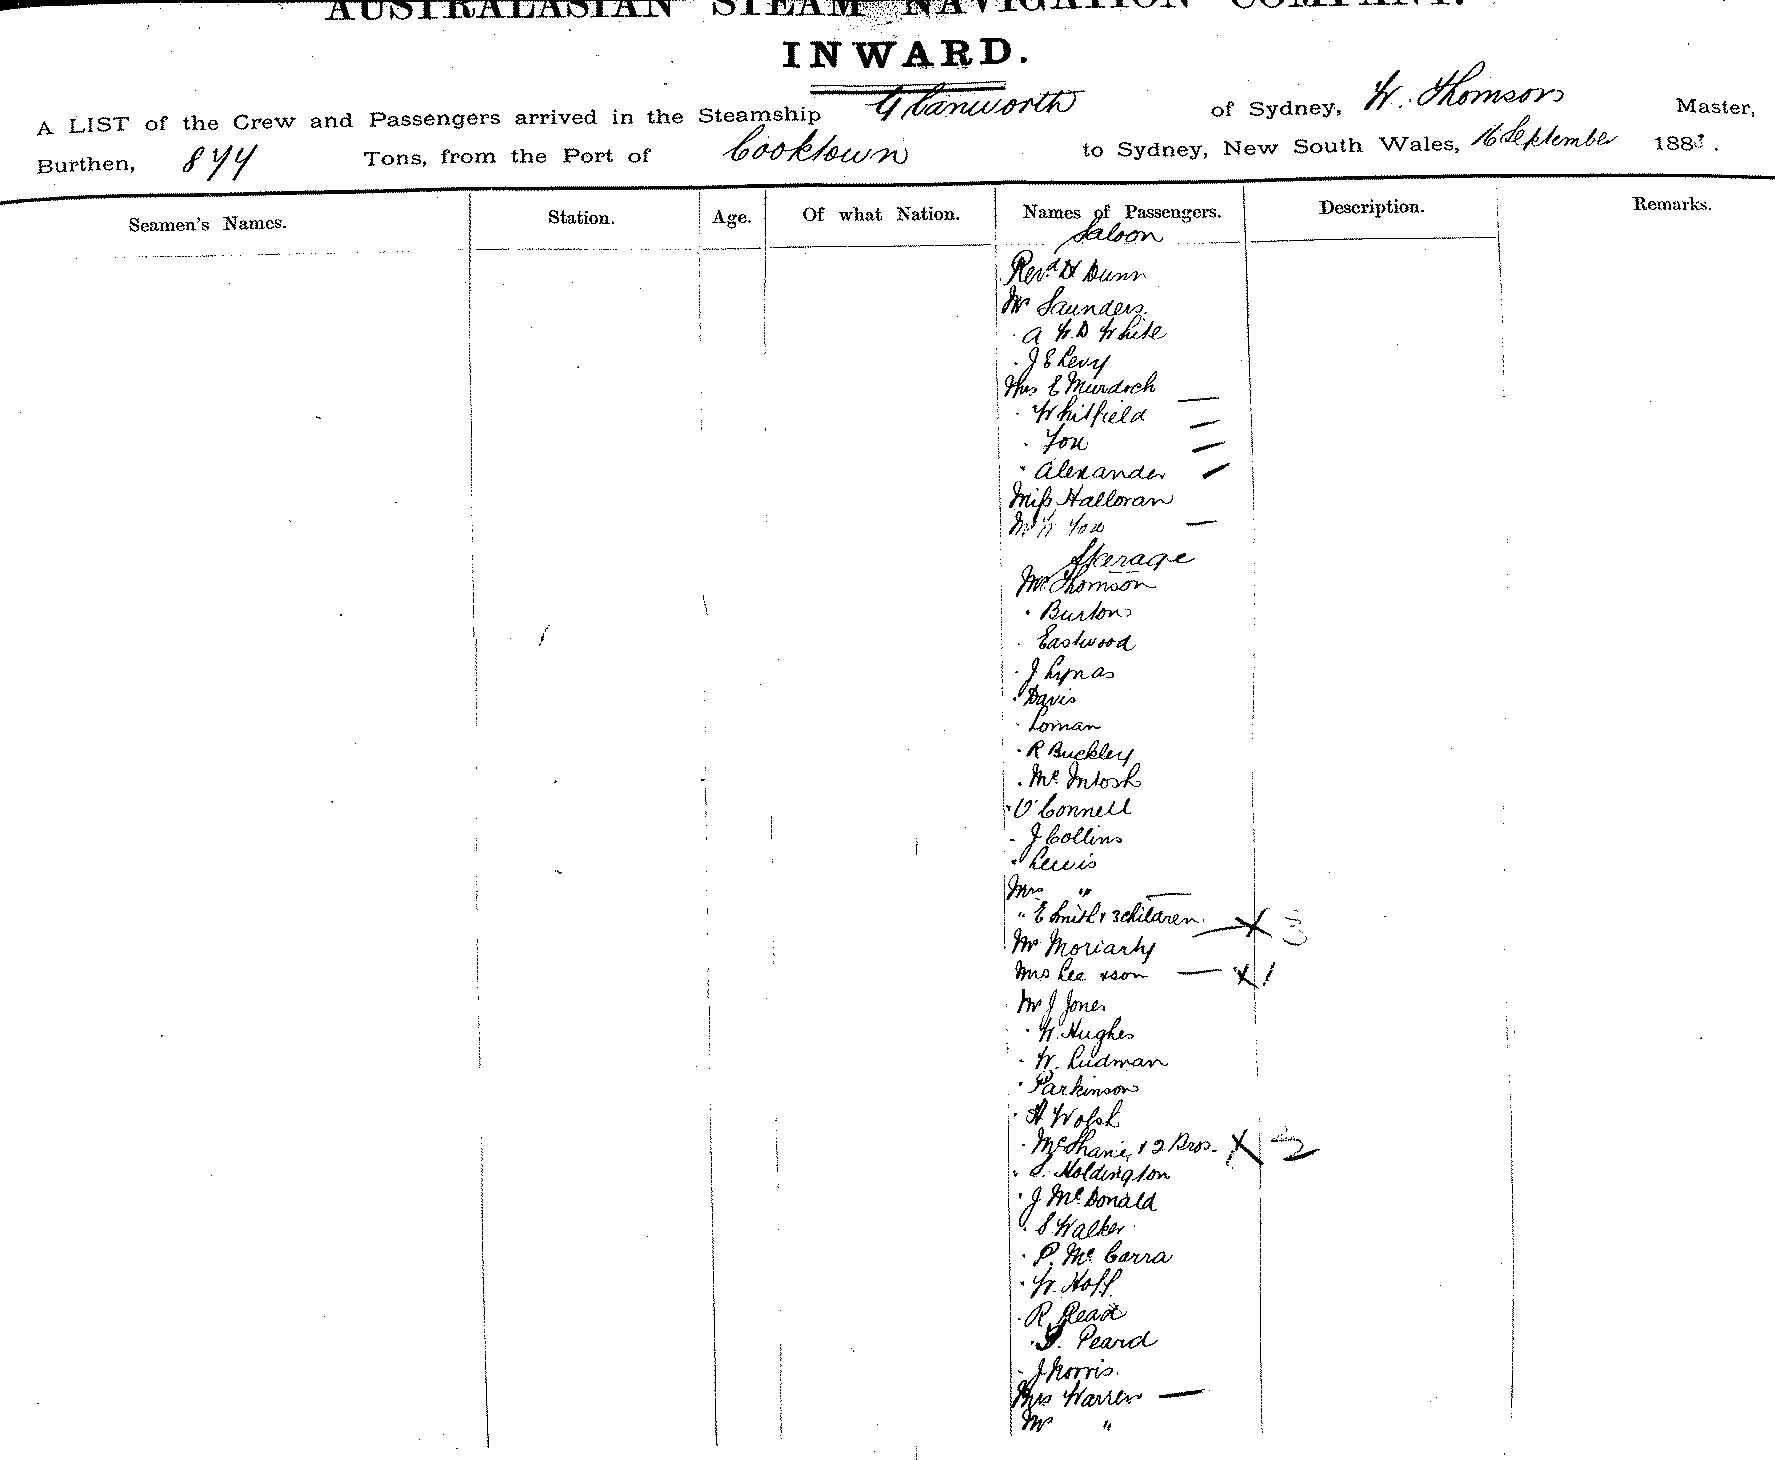 AUSTRALASIAN STEAM NAVIGATION COMPANY.
INWARD.
A LIST of the Crew and Passengers arrived in the Steamship Glanworth of Sydney, W. Thomson Master,
Burthen, 844 Tons, from the Port of Cooktown to Sydney, New South Wales, 16 September 1883.
Seamen's Names. Station. Age. Of what Nation. Names of Passengers. Description. Remarks.
Saloon
Revd H Dunn
Mr Saunders
. A W.D White
. J E Levy
Mrs E Murdoch —
. Whitfield —
. Fox —
" Alexander —
Miss Halloran
Mr W Fox —
Steerage
Mr Thomson
. Burton
. Eastwood
. J Lynas
. Davis
. Loman
. R Buckley
. Mc Intosh
" O'Connell
. J Collins
" Lewis
Mrs " —
" E Smith & 3 children — X 3
Mr Moriarty
Mrs Lee & son — X 1
Mr J Jones
. W. Hughes
. W. Ludman
. Parkinson
. H Walsh
. McShane & 2 Bros. X 2
. Holdington
. J McDonald
. S Walker
. P. Mc Carra
. W. Hoff
. R Read
. Peard
. J Norris.
Mrs Warren —
Mr "